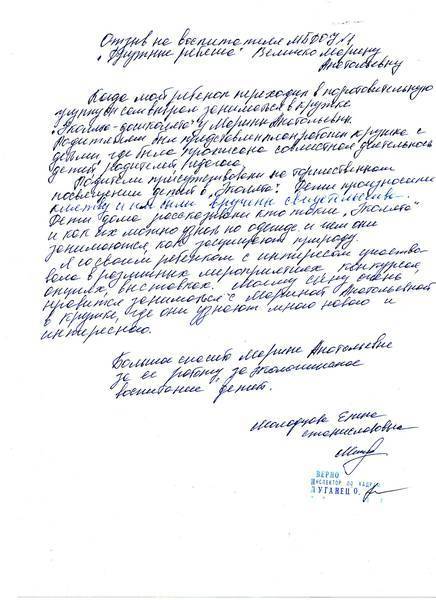 Отзыв на воспитателя МБДОУ №1
"Дружные ребята" Величко Марину
Анатольевну
Когда мой ребенок переходил в подготовительную
группу он заниматься в кружке
"Эколята-дошколята" у Марины Анатольевны.
Родителям был представлен план работы кружка с
детьми, где была прописана совместная деятельность
детей, родителей, педагога.
Родители присутствовали на торжественном
посвящении детей в "Эколята". Дети произносили
клятву и им были вручены свидетельства.
Дети дома рассказывали кто такие "Эколята"
и как их можно узнать по одежде и чем они
занимаются, как защищают природу.
Я со своим ребенком с интересом участво-
вала в различных мероприятиях, конкурсах,
акциях, выставках. Моему сыну очень
нравится заниматься с Мариной Анатольевной
в кружке, где они узнают много нового и
интересного.
Большое спасибо Марине Анатольевне
за её работу, за экологическое
воспитание детей.
Елена
Станиславовна
ВЕРНО
ИНСПЕКТОР ПО КАДРАМ
ЛУГАНЕЦ О.